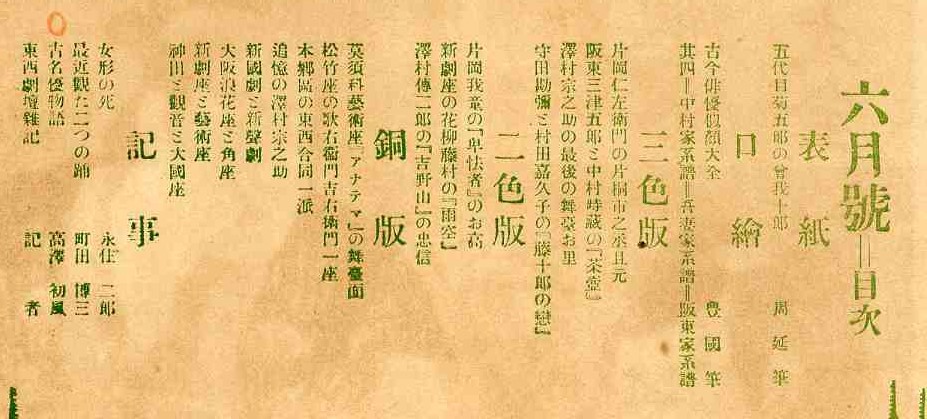 六月號＝目次
表紙
五代目菊五郎の曾我十郎　周延筆
口繪
古今俳優似顔大全　豊國筆
其四＝中村家系譜＝吾妻家系譜＝阪東家系譜
三色版
片岡仁左衛門の片桐市之丞且元
阪東三津五郎と中村時蔵の『茶壺』
澤村宗之助の最後の舞臺お里
二色版
守田勘彌と村田嘉久子の『藤十郎の戀』
片岡我童の『卑怯者』のお高
新劇座の花柳藤村の『雨空』
澤村傳二郎の『吉野山』の忠信
銅版
莫須科藝術座『アナテマ』の舞臺面
松竹座の歌右衛門吉右衛門一座
本郷座の東西合同一派
追憶の澤村宗之助
新國劇と新聲劇
大阪浪花座と角座
新劇座と藝術座
神田と觀音と大國座
記事
女形の死　永住二郎
最近觀た二つの踊　町田博三
古名優物語　高澤初風
東西劇壇雜記　記者